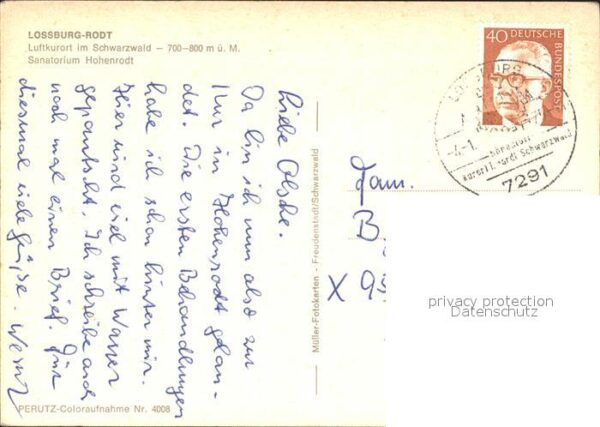 LOSSBURG-RODT
Luftkurort im Schwarzwald – 700-800 m ü. M.
Sanatorium Hohenrodt
Liebe
Da bin ich nun also zur
Kur in Hohenrodt gelan-
det. Die ersten Behandlungen
habe ich schon hinter mir.
Hier wird viel mit Wasser
gepantscht. Ich schreibe auch
noch mal einen Brief. Für
diesmal viele Grüße. Werner
PERUTZ-Coloraufnahme Nr. 4008
Müller-Fotokarten - Freudenstadt/Schwarzwald
40 DEUTSCHE
BUNDESPOST
kurort i. nördl Schwarzwald
7291
Fam.
B
X 95
privacy protection
Datenschutz